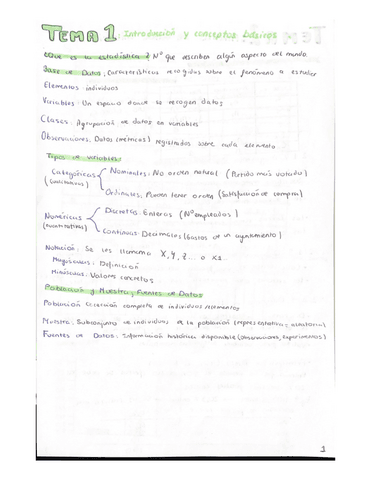 TEMA 1: Introducción y conceptos básicos
¿Qué es la estadística? Nº que describen algún aspecto del mundo
Base de Datos: Características recogidas sobre el fenómeno a estudiar
Elementos: individuos
Variables: Un espacio donde se recogen datos
Clases: Agrupación de datos en variables
Observaciones: Datos (métricos) registrados sobre cada elemento
Tipos de variables:
Categóricas (cualitativas)
Nominales: No orden natural (Partido más votado)
Ordinales: Pueden tener orden (Satisfacción de compra)
Numéricas (cuantitativas)
Discretas: Enteros (Nº empleados)
Continuas: Decimales (Gastos de un ayuntamiento)
Notación: Se les llama X, Y, Z... o X1...
Mayúsculas: Definición
Minúsculas: Valores concretos
Población y Muestra; Fuentes de Datos
Población: Colección completa de individuos
Muestra: Subconjunto de individuos de la población (representativa, aleatoria)
Fuentes de Datos: Información histórica disponible (observaciones, experimentos)
1